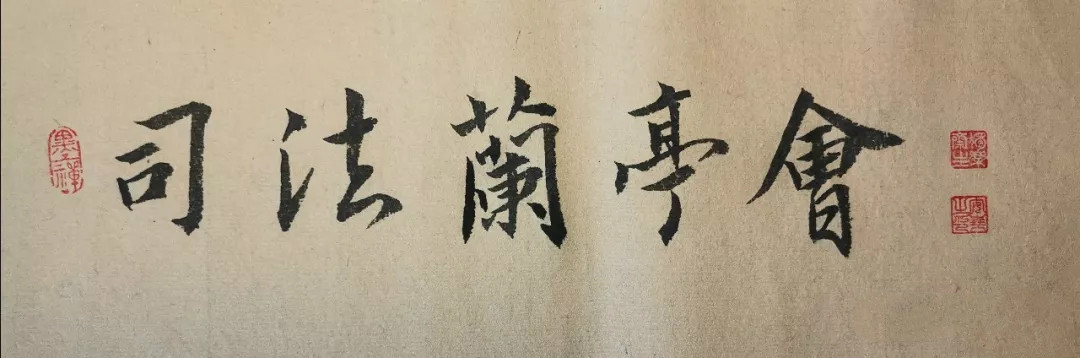 司法蘭亭會